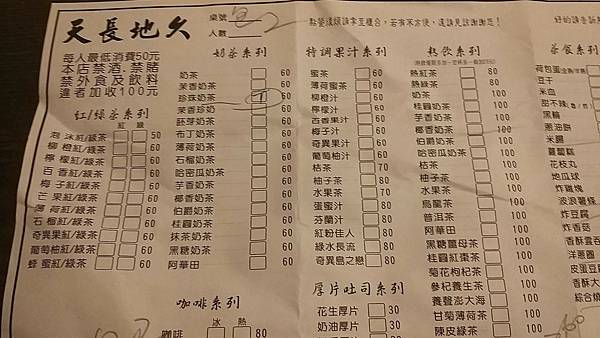 天長地久
桌號
人數
點餐後煩請拿至櫃台，若有不方便，還請見諒謝謝您！
每人最低消費50元
本店禁酒，禁賭
禁外食及飲料
違者加收100元
紅/綠茶系列
紅 綠
泡沫紅/綠茶 50
柳橙紅/綠茶 60
檸檬紅/綠茶 60
百香紅/綠茶 60
梅子紅/綠茶 60
芒果紅/綠茶 60
薄荷紅/綠茶 60
石榴紅/綠茶 60
奇異果紅/綠茶 60
葡萄柚紅/綠茶 60
蜂蜜紅/綠茶 60
奶茶系列
奶茶 60
茉香奶茶 60
珍珠奶茶 1 60
茉香珍奶 60
胚芽奶茶 60
布丁奶茶 60
薄荷奶茶 60
石榴奶茶 60
哈密瓜奶茶 60
芋香奶茶 60
椰香奶茶 60
伯爵奶茶 60
桂圓奶茶 60
抹茶奶茶 60
黑糖奶茶 60
阿華田 60
咖啡系列
冰 熱
咖啡 80
特調果汁系列
蜜茶 60
薄荷蜜茶 60
柳橙汁 60
檸檬汁 60
百香果汁 60
梅子汁 60
奇異果汁 60
葡萄柚汁 60
桔茶 70
柚子茶 80
水果茶 70
蛋蜜汁 80
芬蘭汁 80
紅粉佳人 80
綠水長流 80
奇異島之戀 80
厚片吐司系列
花生厚片 30
奶油厚片 30
熱飲系列
熱紅茶 80
熱綠茶 80
奶茶 100
桂圓奶茶 100
芋香奶茶 100
椰香奶茶 100
伯爵奶茶 100
哈密瓜奶茶 100
桔茶 100
柚子茶 100
水果茶 100
烏龍茶 100
普洱茶 100
阿華田 100
黑糖薑母茶 100
桂圓紅棗茶 100
菊花枸杞茶 100
參杞養生茶 100
養聲澎大海 100
甘菊薄荷茶 100
陳皮綠茶 100
茶食系列
豆干
米血
甜不辣
黑輪
蔥油餅
米腸
蘿蔔糕
花枝丸
地瓜球
炸雞塊
波浪薯條
炸豆腐
炸香菇
香酥雲吞
洋蔥圈
皮蛋豆腐
香酥大
綜合